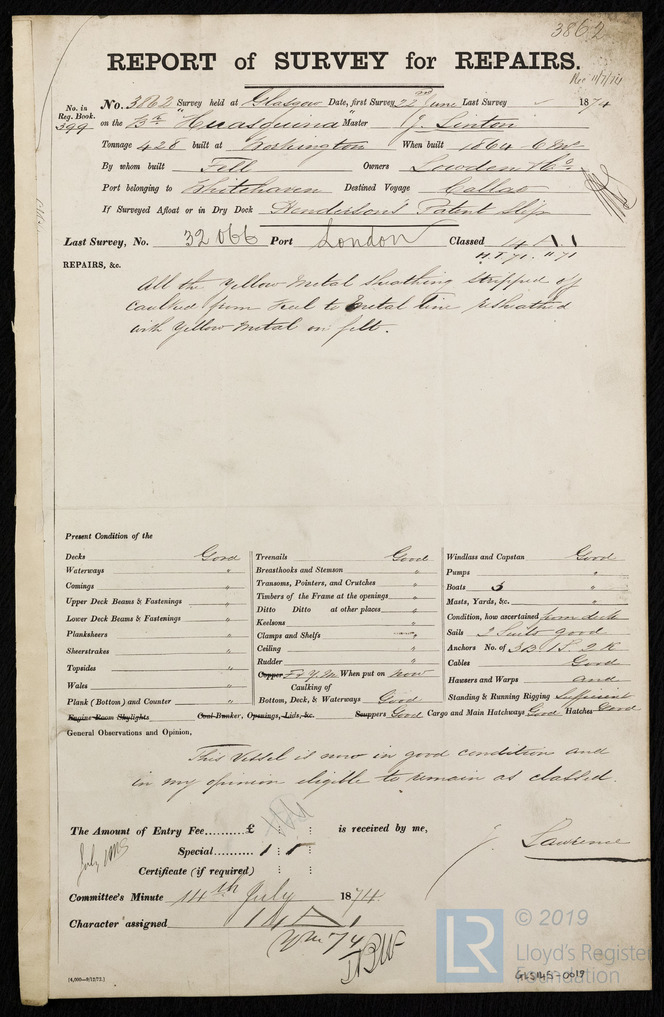 3862
REPORT of SURVEY for REPAIRS.
Rec 11/7/74
No. in Reg. Book. 399
No. 3862 Survey held at Glasgow Date, first Survey 22nd June Last Survey 1874
on the Bk "Huasquina" Master J. Linton
Tonnage 428 built at Workington When built 1864 - 6 Mo
By whom built Fell Owners Lowden & Co.
Port belonging to Whitehaven Destined Voyage Callao
If Surveyed Afloat or in Dry Dock Henderson's Patent Slip
Last Survey, No. 32066 Port London Classed 14 A.1
H.T. 71. 71
REPAIRS, &c.
All the Yellow Metal Sheathing stripped off
caulked from Keel to Metal line resheathed
with Yellow Metal on felt.
Present Condition of the
Decks Good
Waterways "
Comings "
Upper Deck Beams & Fastenings "
Lower Deck Beams & Fastenings "
Planksheers "
Sheerstrakes "
Topsides "
Wales "
Plank (Bottom) and Counter "
Engine Room Skylights
Treenails Good
Breasthooks and Stemson "
Transoms, Pointers, and Crutches "
Timbers of the Frame at the openings "
Ditto Ditto at other places "
Keelsons "
Clamps and Shelfs "
Ceiling "
Rudder "
Copper F & Y.M. When put on now
Caulking of
Bottom, Deck, & Waterways Good
Coal Bunker, Openings, Lids, &c.
Windlass and Capstan Good
Pumps "
Boats 3 "
Masts, Yards, &c. "
Condition, how ascertained from deck
Sails 2 Suits good
Anchors No. of 3B 1S 2K
Cables Good
Hawsers and Warps and
Standing & Running Rigging Sufficient
Scuppers Good Cargo and Main Hatchways Good Hatches Good
General Observations and Opinion,
This Vessel is now in good condition and
in my opinion eligible to remain as classed.
The Amount of Entry Fee £ : : is received by me,
Special 1 : 1 :
Certificate (if required) : :
J. Lawrence
Committee's Minute 14th July 1874.
Character assigned 14 A 1
Ym 74
[4,000—9/12/72.]
LR
© 2019
Lloyd's Register
Foundation
GLS145-0019